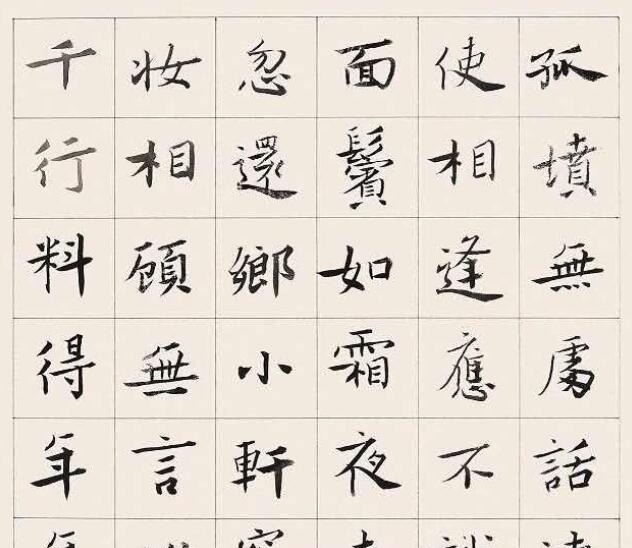 孤墳無處話
使相逢應不
面鬢如霜夜
忽還鄉小軒
妆相顧無言
千行料得年